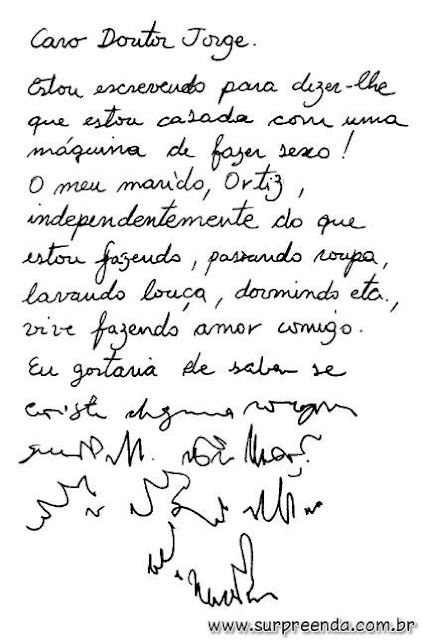 Caro Doutor Jorge.
Estou escrevendo para dizer-lhe
que estou casada com uma
máquina de fazer sexo!
O meu marido, Ortiz,
independentemente do que
estou fazendo, passando roupa,
lavando louça, dormindo etc.,
vive fazendo amor comigo.
Eu gostaria de saber se
existe alguma
www.surpreenda.com.br